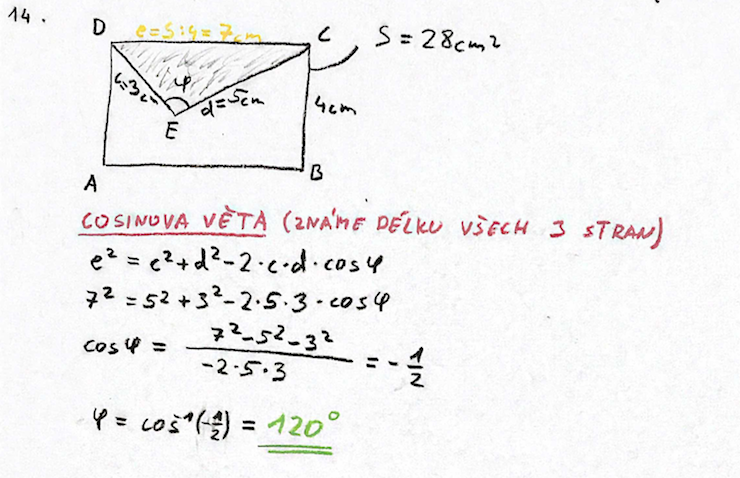 14.
D e=S:4=7cm C S = 28cm²
c=3cm φ d=5cm 4cm
E
A B
COSINOVA VĚTA (ZNÁME DÉLKU VŠECH 3 STRAN)
e² = c²+d²-2·c·d·cosφ
7² = 5²+3²-2·5·3·cosφ
cosφ = 7²-5²-3² / -2·5·3 = -1/2
φ = cos⁻¹(-1/2) = 120°